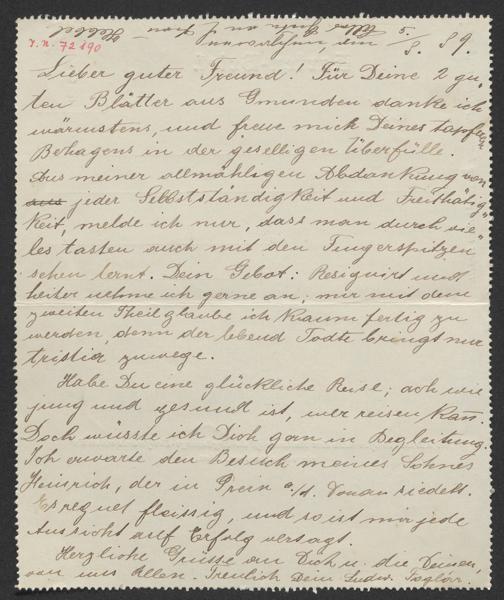 5./8. 89.
I.N. 72190
Lieber guter Freund! Für Deine 2 gu„
ten Blätter aus Gmunden danke ich
wärmstens, und freue mich Deines tapferen
Behagens in der geselligen Überfülle.
Aus meiner allmähligen Abdankung von
jeder Selbstständigkeit und Freithätig„
keit, melde ich nur, dass man durch vie„
les tasten auch mit den Fingerspitzen
sehen lernt. Dein Gebot: Resignirt und
heiter nehme ich gerne an; nur mit dem
zweiten Theil glaube ich kaum fertig zu
werden, denn der lebend Todte bringt nur
tristia zuwege.
Habe Du eine glückliche Reise; ach wie
jung und gesund ist, wer reisen kan.
Doch wüsste ich Dich gern in Begleitung.
Ich erwarte den Besuch meines Sohnes
Heinrich, der in Prein a/d. Donau siedelt.
Es regnet fleissig, und so ist mir jede
Aussicht auf Erfolg versagt.
Herzliche Grüsse an Dich u. die Deinen,
von uns Allen. Treulich Dein Ludw.